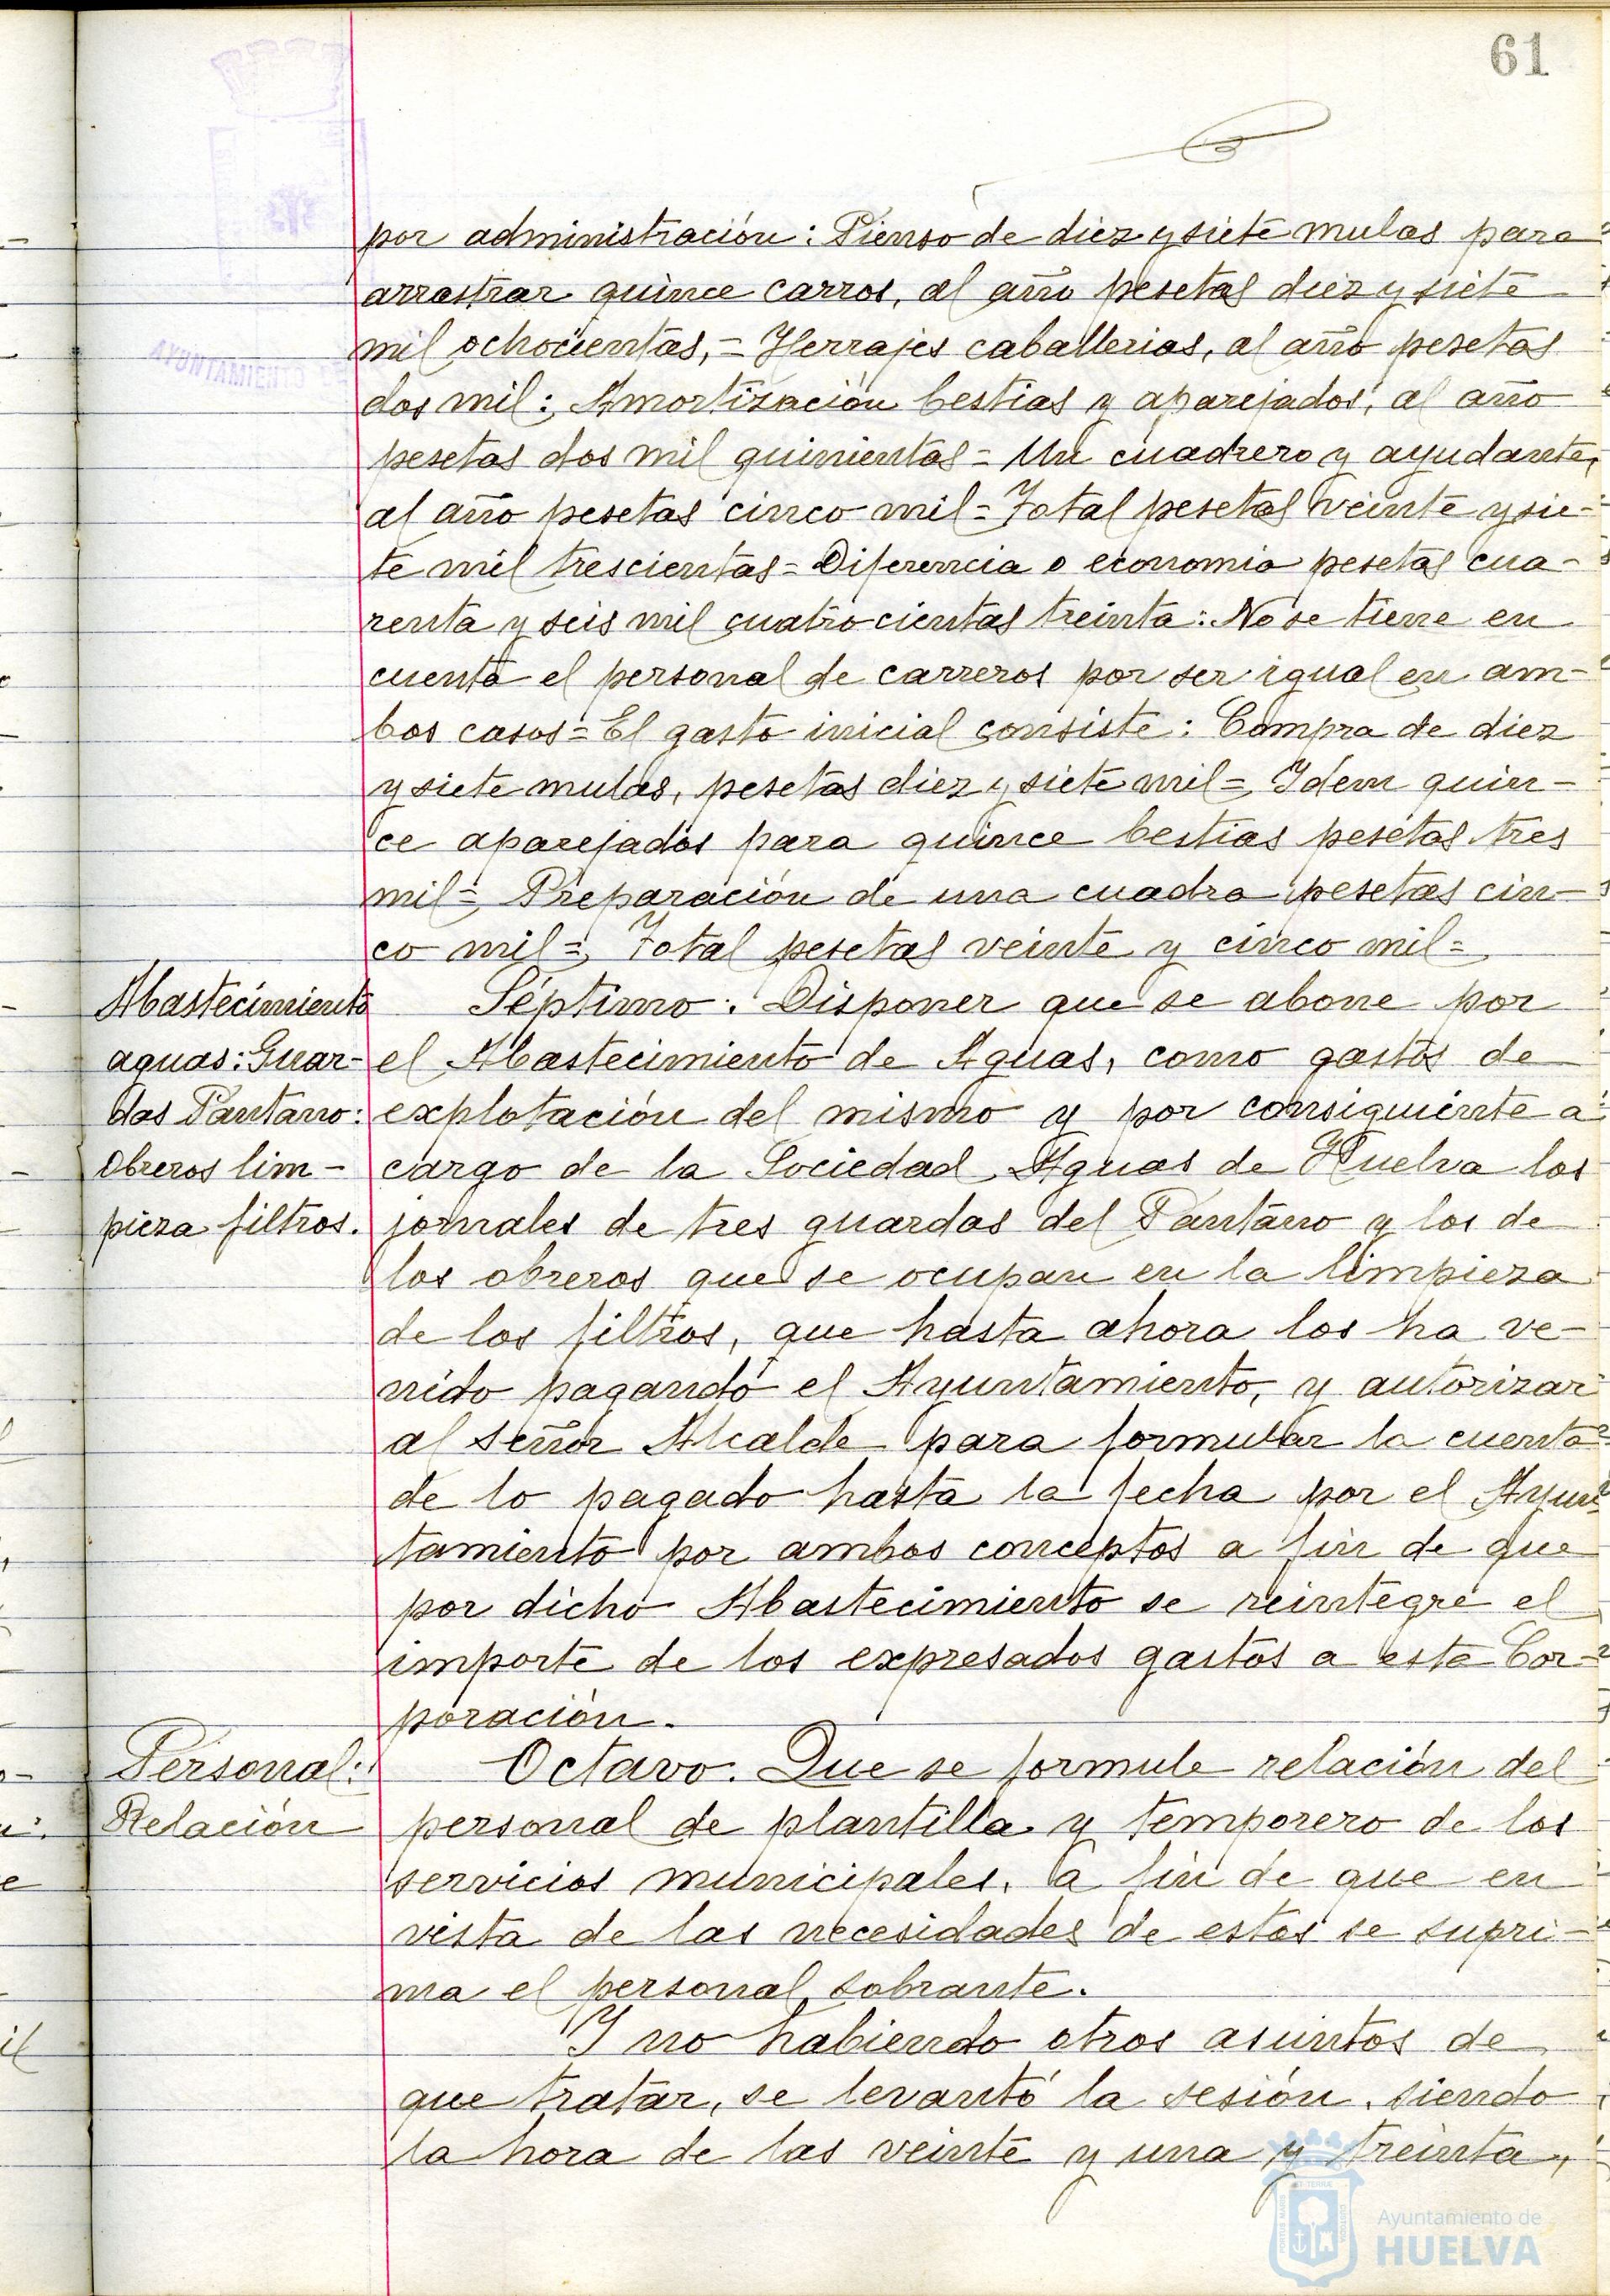 61
por administración: Pienso de diez y siete mulas para
arrastrar quince carros, al año pesetas diez y siete
mil ochocientas,= Herrajes caballerias, al año pesetas
dos mil: Amortización bestias y aparejados, al año
pesetas dos mil quinientas= Un cuadrero y ayudante,
al año pesetas cinco mil= Total pesetas veinte y sie-
te mil trescientas= Diferencia o economia pesetas cua-
renta y seis mil cuatrocientas treinta: No se tiene en
cuenta el personal de carreros por ser igual en am-
bos casos= El gasto inicial consiste: Compra de diez
y siete mulas, pesetas diez y siete mil= Idem quin-
ce aparejados para quince bestias pesetas tres
mil= Preparación de una cuadra pesetas cin-
co mil= Total pesetas veinte y cinco mil=
Abastecimiento
aguas: Guar-
das Pantano:
Obreros lim-
pieza filtros.
Séptimo: Disponer que se abone por
el Abastecimiento de Aguas, como gastos de
explotación del mismo y por consiguiente a
cargo de la Sociedad Aguas de Huelva los
jornales de tres guardas del Pantano y los de
los obreros que se ocupan en la limpieza
de los filtros, que hasta ahora los ha ve-
nido pagando el Ayuntamiento, y autorizar
al señor Alcalde para formular la cuenta
de lo pagado hasta la fecha por el Ayun-
tamiento por ambos conceptos a fin de que
por dicho Abastecimiento se reintegre el
importe de los expresados gastos a esta Cor-
poración.
Personal:
Relación
Octavo. Que se formule relación del
personal de plantilla y temporero de los
servicios municipales, a fin de que en
vista de las necesidades de estos se supri-
ma el personal sobrante.
Y no habiendo otros asuntos de
que tratar, se levantó la sesión, siendo
la hora de las veinte y una y treinta,
AYUNTAMIENTO
Ayuntamiento de
HUELVA